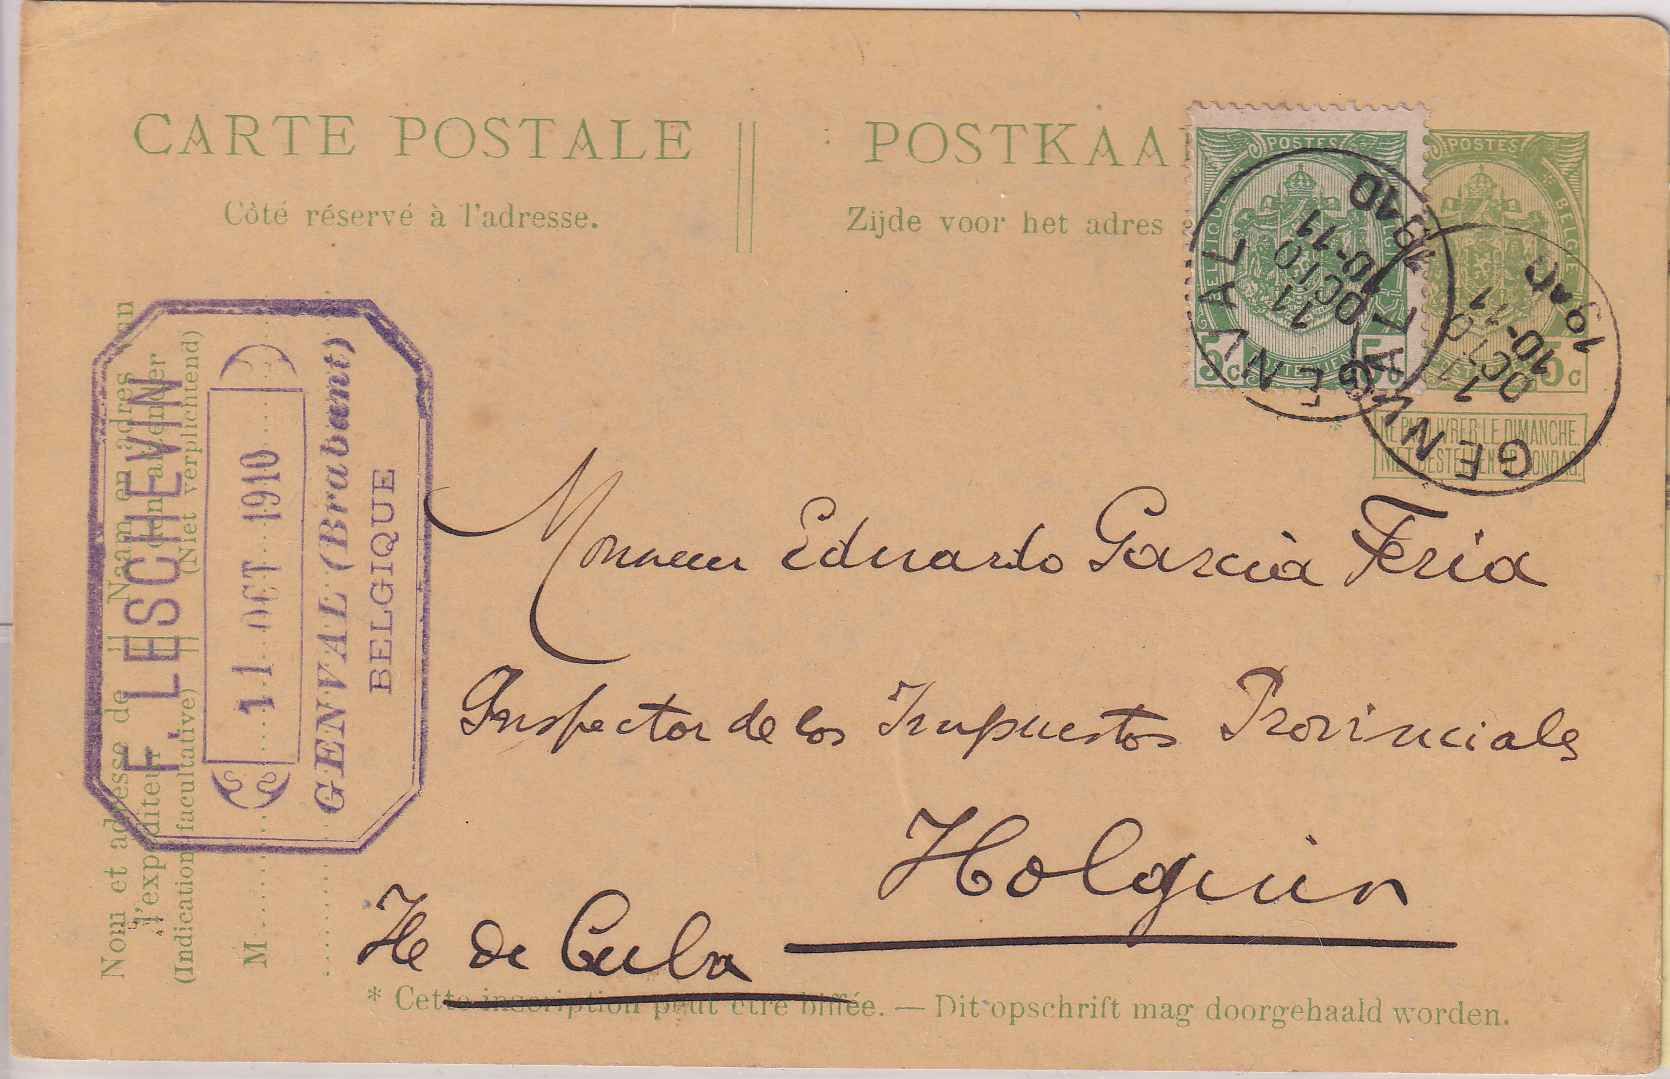 CARTE POSTALE
Côté réservé à l'adresse.
POSTKAA
Zijde voor het adres
POSTES
BELGIQUE
5 c
5 c
POSTES
BELGIE
5 c
NE PAS LIVRER LE DIMANCHE.
NIET BESTELLEN ZONDAG.
GENVAL
11
OCT 10
10-11
1910
GENVAL
11
OCT 10
10-11
1910
Nom et adresse de
l'expéditeur
(Indication facultative)
Naam en adres
van den afzender
(Niet verplichtend)
M
F. LESCHEVIN
11 OCT 1910
GENVAL (Brabant)
BELGIQUE
Monsieur Eduardo Garcia Feria
Inspector de los Impuestos Provinciales
Holguin
Ile de Cuba
* Cette inscription peut être biffée. — Dit opschrift mag doorgehaald worden.